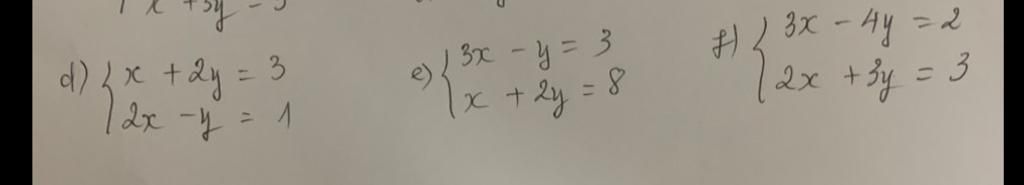 x + 3y = 3
d) { x + 2y = 3
2x - y = 1
e) { 3x - y = 3
x + 2y = 8
f) { 3x - 4y = 2
2x + 3y = 3